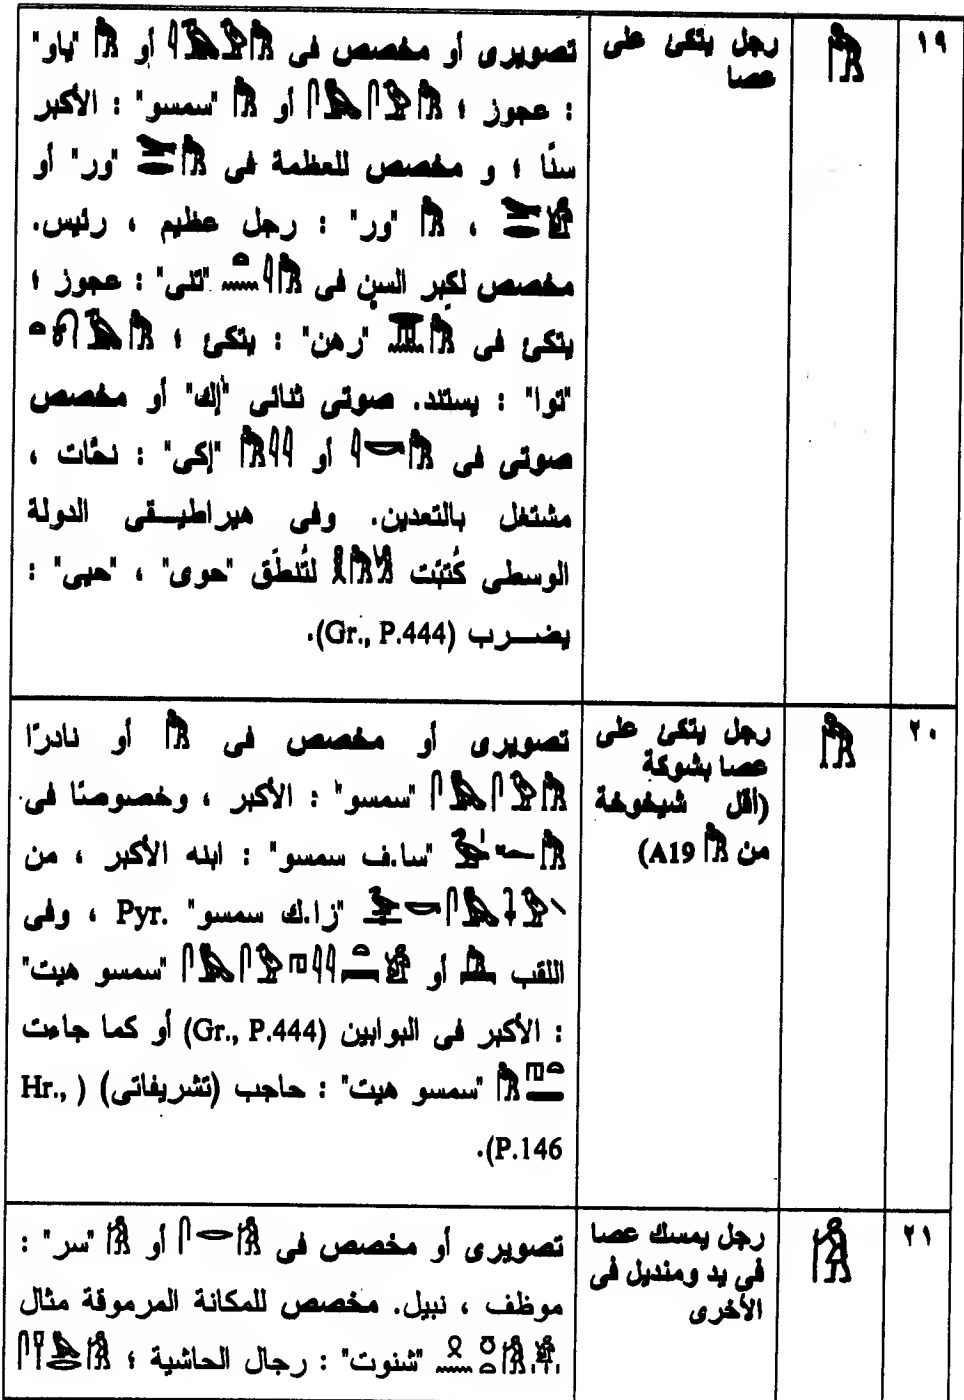 ١٩
رجل يتكئ على
عصا
تصويرى أو مخصص فى أو "ياو"
: عجوز ؛ أو "سمسو" : الأكبر
سنًا ؛ و مخصص للعظمة فى "ور" أو
، "ور" : رجل عظيم ، رئيس.
مخصص لكبر السن فى "تنى" : عجوز ؛
يتكئ فى "رهن" : يتكئ ؛
"توا" : يستند. صوتى ثنائى "إك" أو مخصص
صوتى فى أو "إكى" : نحَّات ،
مشتغل بالتعدين. وفى هيراطيقى الدولة
الوسطى كُتبَت لتُنطَق "حوى" ، "حيى" :
يضرب (Gr., P.444).
٢٠
رجل يتكئ على
عصا بشوكة
(أقل شيخوخة
من A19)
تصويرى أو مخصص فى أو نادرًا
"سمسو" : الأكبر ، وخصوصًا فى
"سا.ف سمسو" : ابنه الأكبر ، من
"زا.ك سمسو" Pyr. ، وفى
اللقب أو "سمسو هيت"
: الأكبر فى البوابين (Gr., P.444) أو كما جاءت
"سمسو هيت" : حاجب (تشريفاتى) (Hr.,
P.146).
٢١
رجل يمسك عصا
فى يد ومنديل فى
الأخرى
تصويرى أو مخصص فى أو "سر" :
موظف ، نبيل. مخصص للمكانة المرموقة مثال
"شنوت" : رجال الحاشية ؛